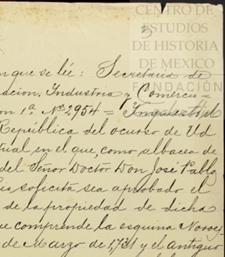 CENTRO DE
ESTUDIOS
DE HISTORIA
DE MEXICO
FUNDACIÓN
que se lée: Secretaria de
Industria y Comercio
1ª. Nº 2954 =
República del ocurso de Ud
en el que, como albacea de
del Señor Doctor Don José Pablo
solicita sea aprobado el
de la propiedad de dicha
que comprende la esquina
de Marzo de 1,731 y el antiguo